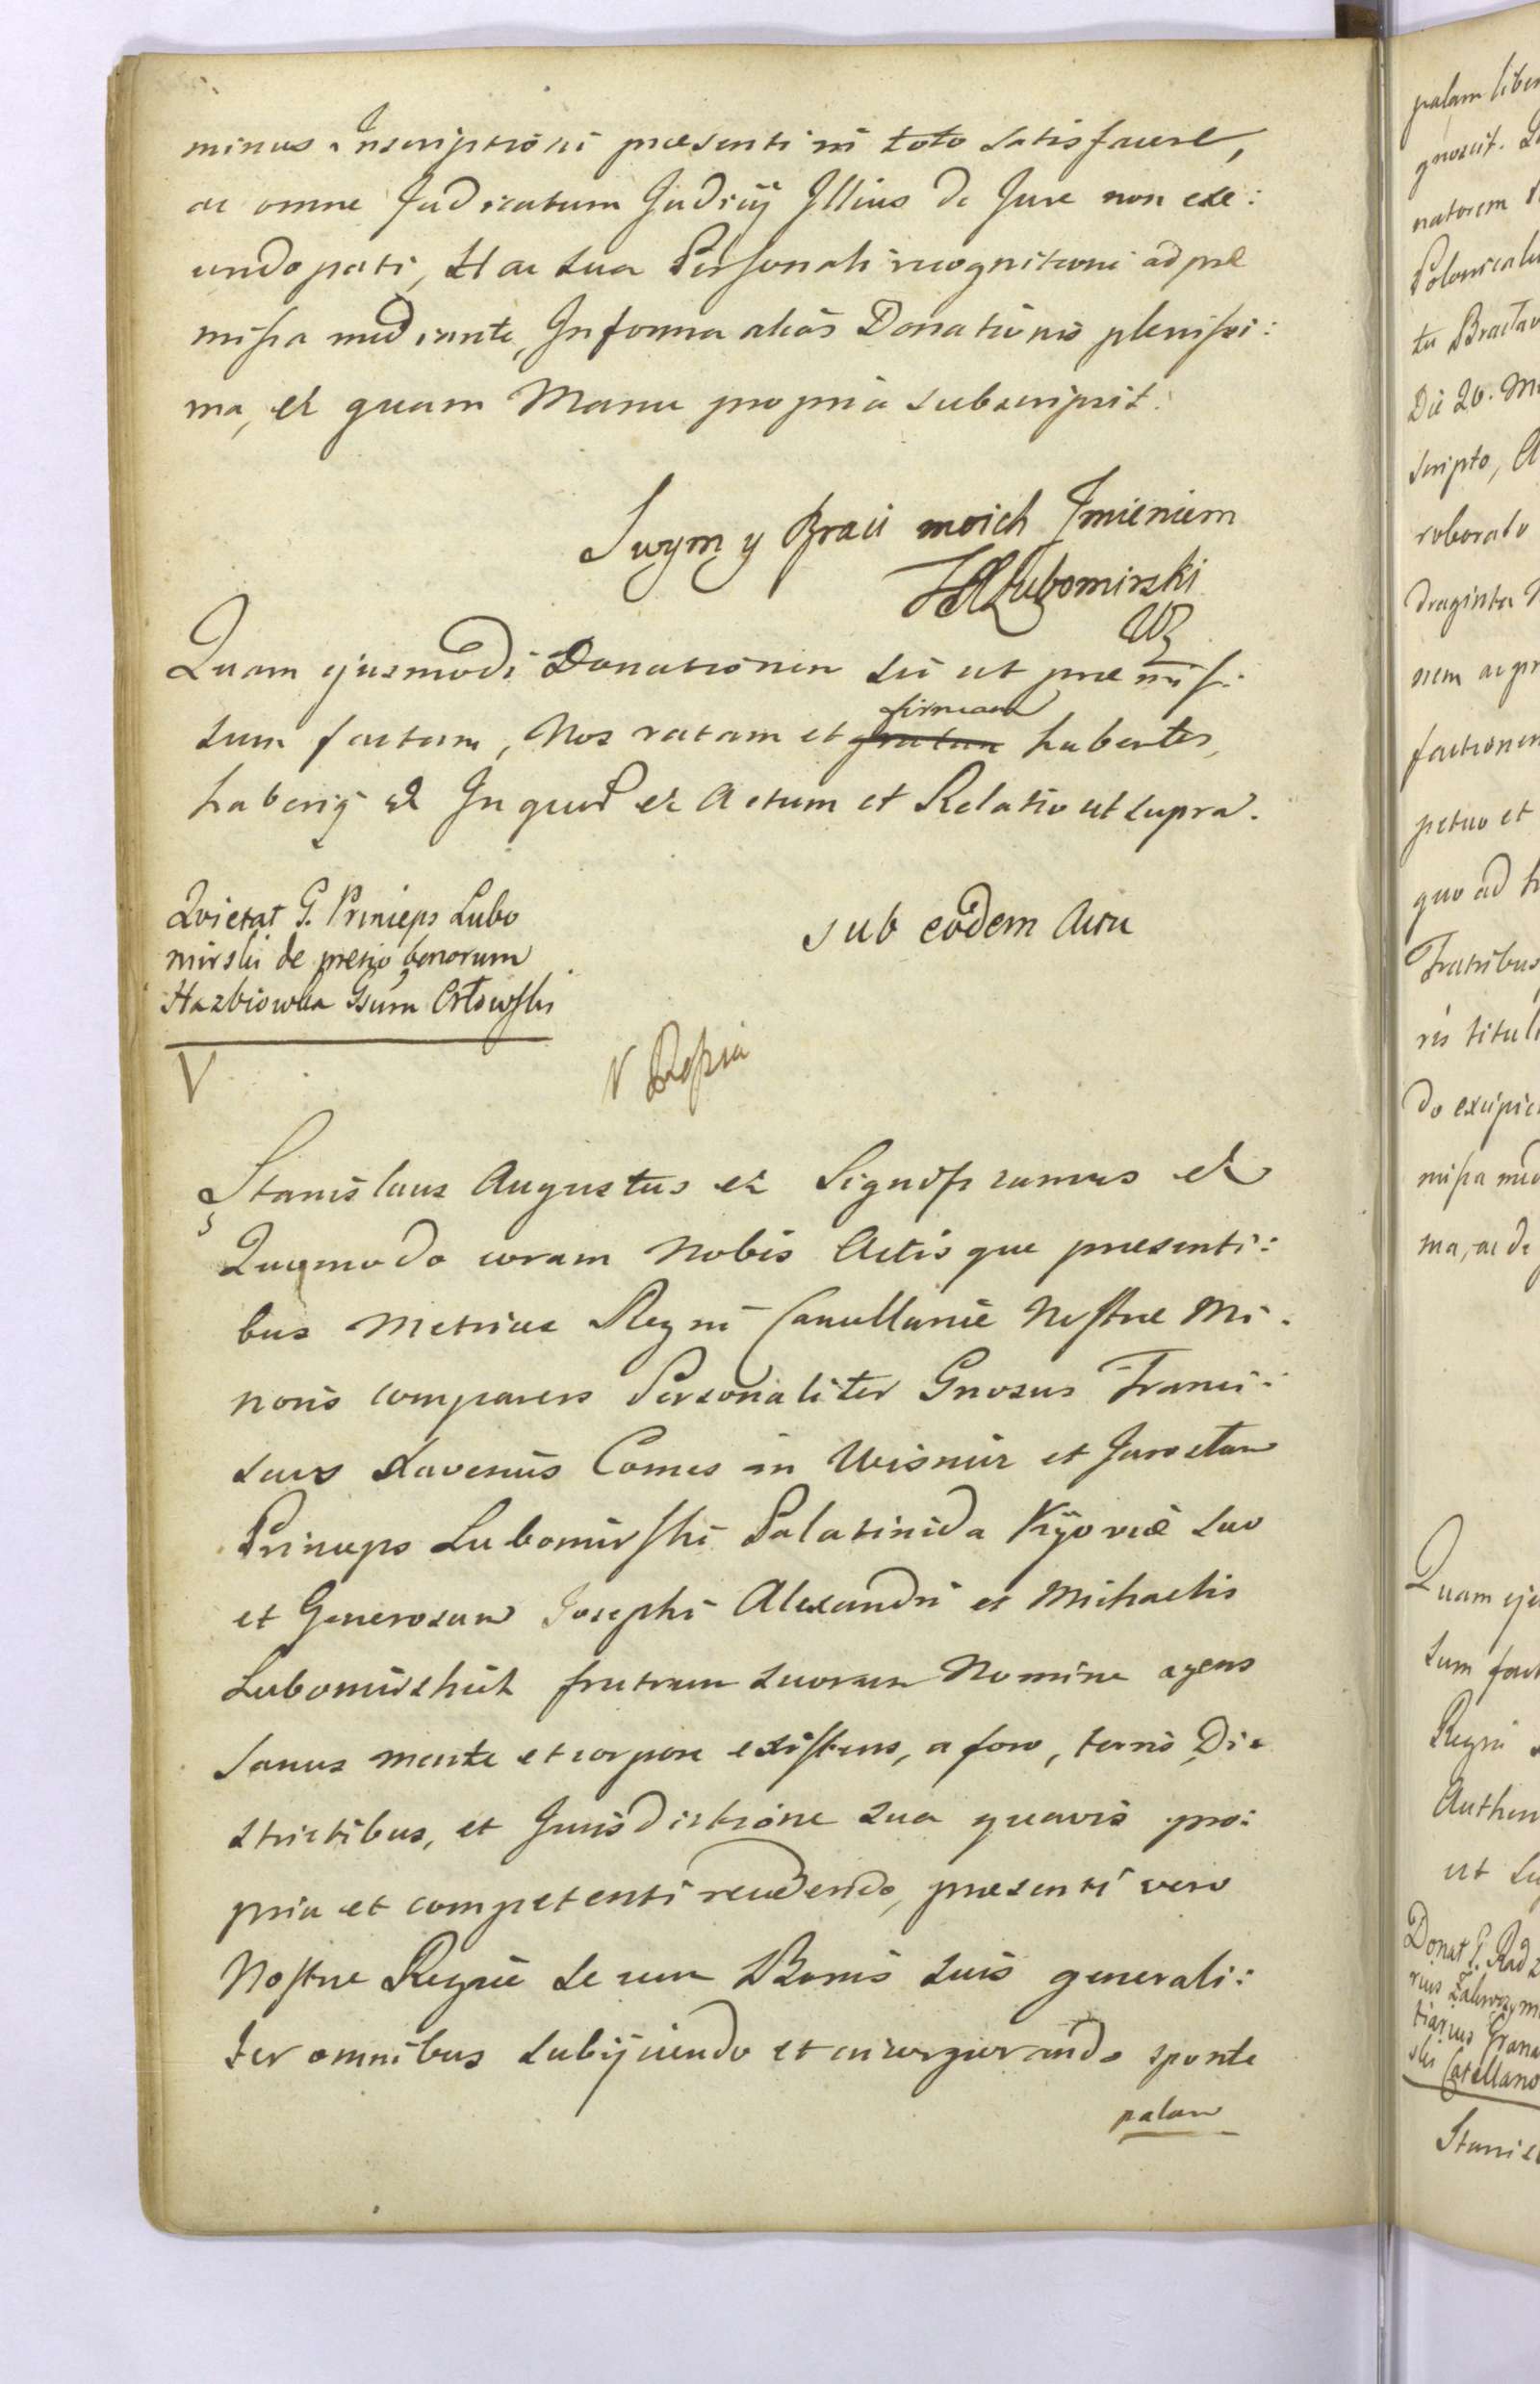 minus Inscriptioni præsenti in toto satisfacere,
ac omne Judicatum Judicij Illius de Jure non exe:
undo pati, Hac sua Personali recognitioni ad præ
missa mediante, In forma alias Donationis plenissi:
ma, et quam Manu propria subscripsit.
Swym y Braci moich Jmieniem
Lubomirski
Quam ejusmodi Donationem sic ut præmis:
sum factam, Nos ratam et gratam firmam habentes,
haberiq et In quor et Actum et Relatio ut supra.
Qvietat G. Princeps Lubo
mirski de pretio bonorum
Hazbiowka Gsum Orłowski
sub eodem Actu
V
V Kopia
Stanislaus Augustus et Significamus et
Quomodo coram Nobis Actisque præsenti:
bus Metrices Regni Cancellariæ Nostræ Mi:
noris comparens Personaliter Gnosus Franci:
scus Xaverius Comes in Wisnicz et Jaroslaw
Princeps Lubomirski Palatinida Kijoviæ suo
et Generosum Josephi Alexandri et Michaelis
Lubomirskich fratrum suorum Nomine agens
Sanus mente et corpore existens, a foro, terris, Di:
strictibus, et Jurisdictione sua quavis pro:
pria et competenti recedendo, præsenti vero
Nostræ Regiæ se cum Bonis suis generali:
ter omnibus subijciendo et incorporando sponte
palam
palam liber
gnoscit.
natorem
Polonicali
tu Bractav
Die 26. M
scripto, A
roborato
draginta
nem ac pr
factionem
petuo et
quo ad
Fratribus
ris titul
do excipi
missa med
ma, ac de
Quam eju
sum fact
Regni
Authen
ut su
Donat G. Radz
rius Zakroczym
tiarius Grana
ski Castellano
Stanisl